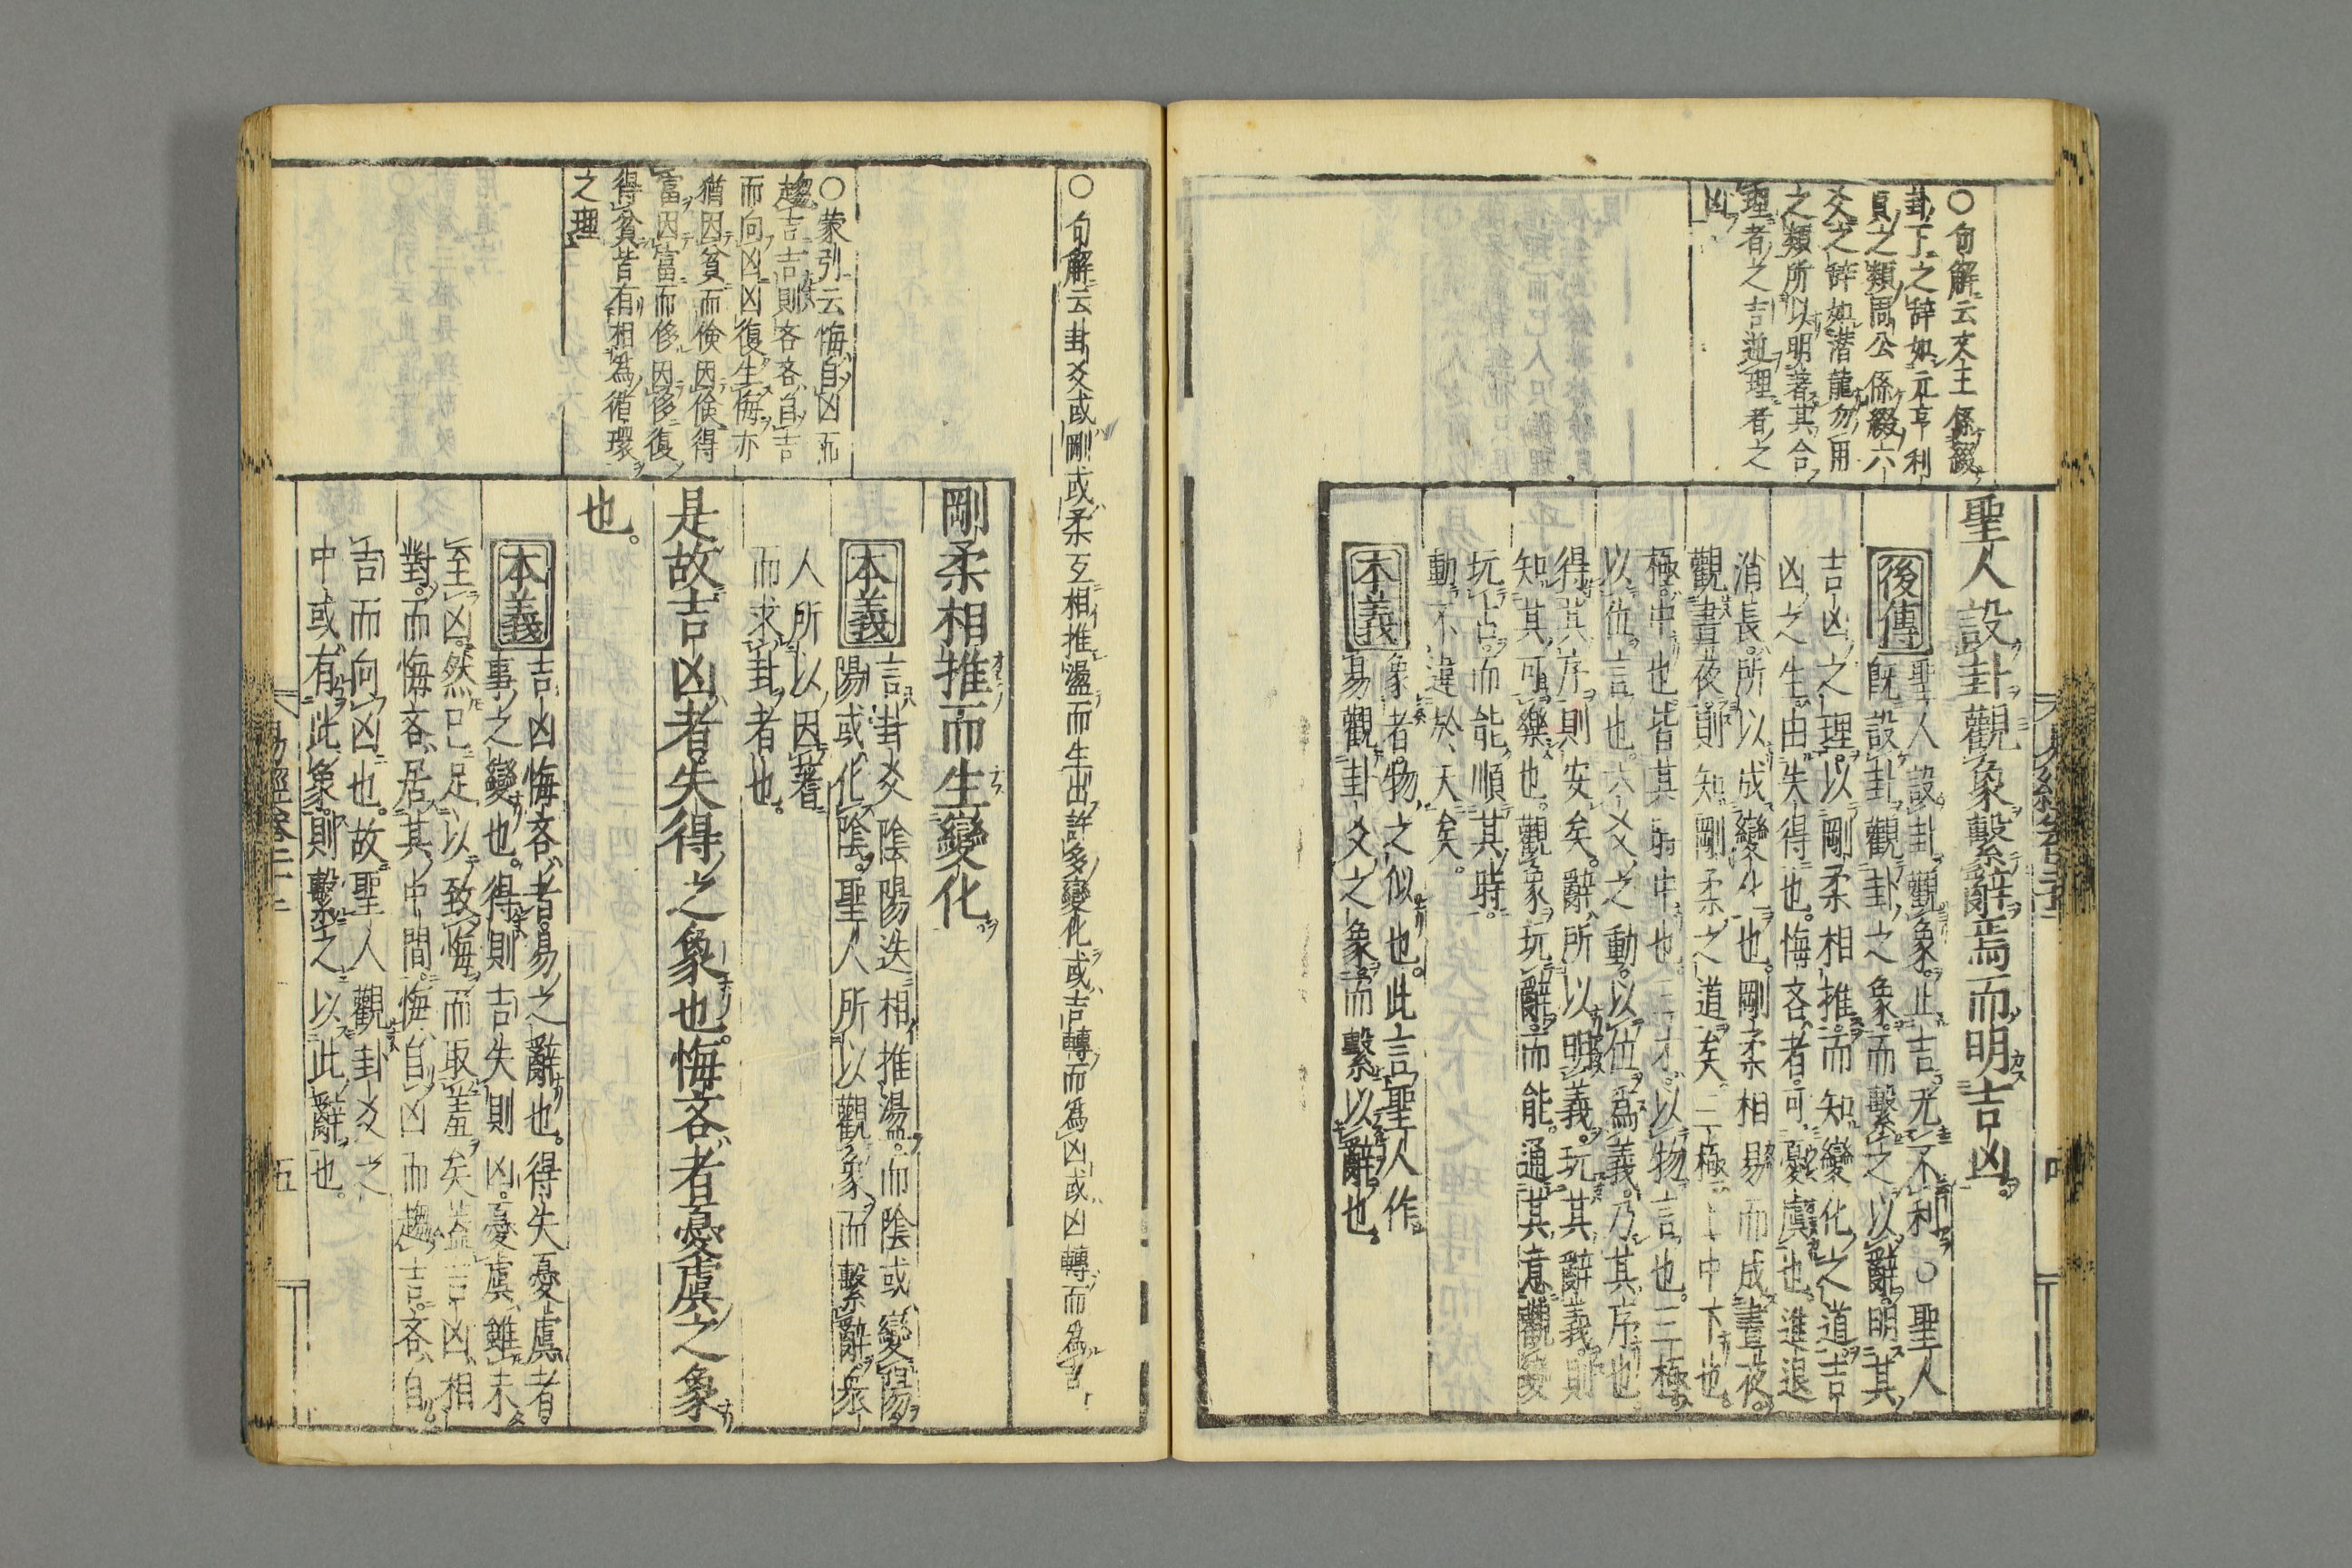 聖人設卦觀象繫辭焉而明吉凶。
後傳
聖人設卦觀象。止吉无不利○聖人
既設卦觀卦之象。而繫之以辭。明其
吉凶之理。以剛柔相推。而知變化之道。吉
凶之生由失得也。悔吝者。可憂虞也。進退
消長。所以成變化也。剛柔相易而成晝夜。
觀晝夜則知剛柔之道矣。三極上中下也。
極中也。皆其時中也。三才。以物言也。三極。
以位言也。六爻之動。以位爲義。乃其序也。
得其序則安矣。辭所以明義。玩其辭義。則
知其可樂也。觀象玩辭。而能。通其意。觀變
玩占。而能順其時。
動不違於天矣。
本義
象者。物之似也。此言聖人作
易觀卦爻之象。而繫以辭也。
○句解云文王係綴
卦下之辞如元亨利
貞之類周公係綴六
爻之辞如潜龍勿用
之類所以明著其合
理者之吉逆理者之
凶
○句解云卦爻或剛或柔互相推盪而生出許多變化或吉轉而爲凶或凶轉而爲吉
剛柔相推而生變化
本義
言卦爻陰陽迭相推盪。而陰或變陽。
陽或化陰。聖人所以觀象而繫辭。衆
人所以因蓍
而求卦者也。
是故吉凶者。失得之象也。悔吝者。憂虞之象
也。
本義
吉凶悔吝者。易之辭也。得失憂虞者。
事之變也。得則吉失則凶。憂虞雖未
至凶。然已足以致悔而取羞矣蓋吉凶相
對。而悔吝居其中間。悔自凶而趨吉。吝自
吉而向凶也。故聖人觀卦爻之
中或有此象。則繫之以此辭也。
○蒙引云悔自凶而
趨吉吉則吝吝自吉
而向凶凶復生悔亦
猶因貧而倹因倹得
富因富而侈因侈復
得貧皆有相爲循環
之理
易經卷二十二
五